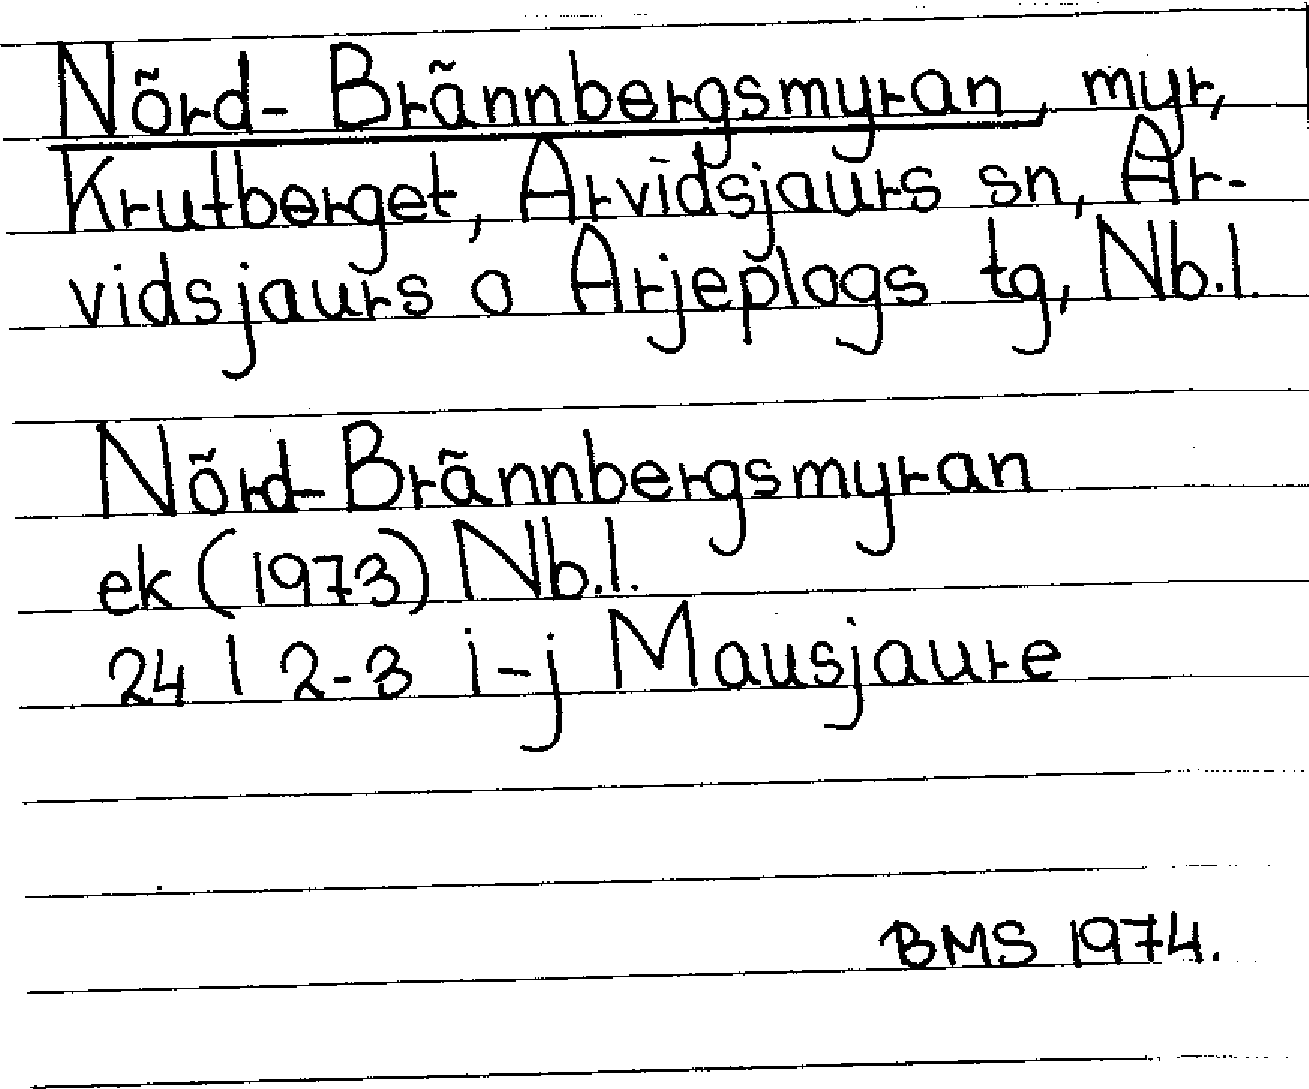 Nörd-Brännbergsmyran, myr,
Krutberget, Arvidsjaurs sn, Ar-
vidsjaurs o Arjeplogs tg, Nb.l.
Nörd-Brännbergsmyran
ek (1973) Nb.l.
24 I 2-3 i-j Mausjaure
BMS 1974.